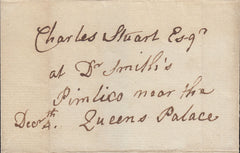 Charles Stuart Esqr
at Dr Smith's
Pimlico near the
Queens Palace
Decr 4th.